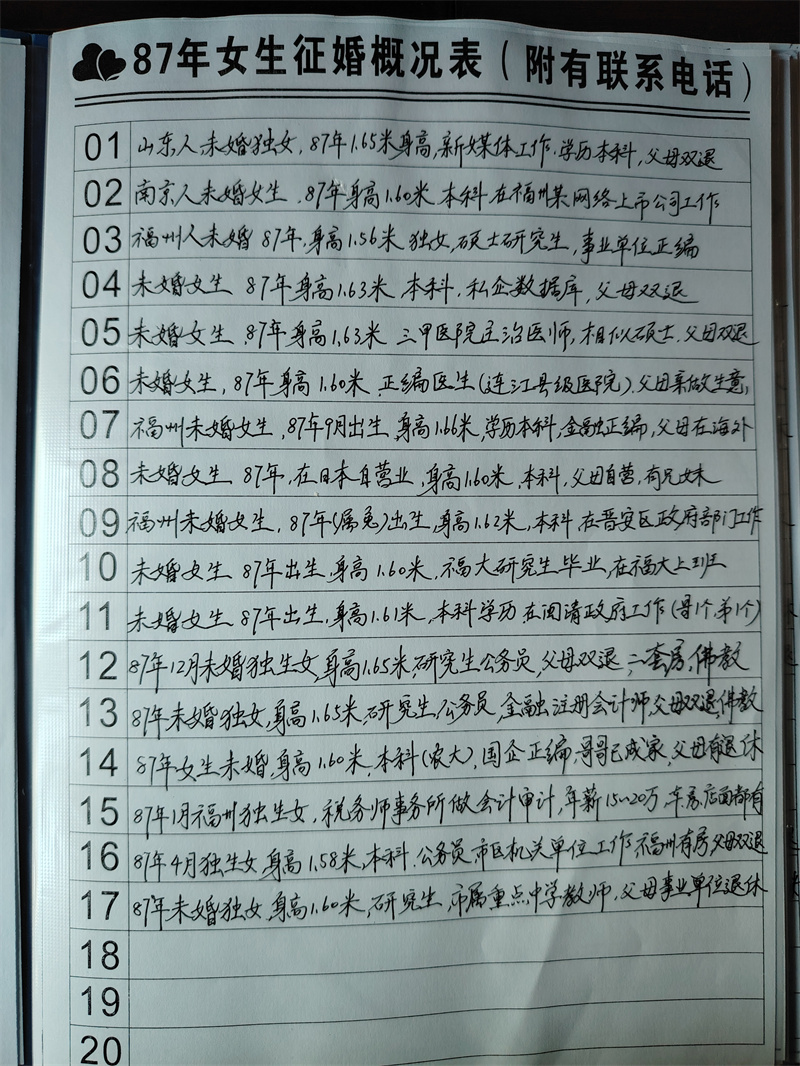 87年女生征婚概况表（附有联系电话）
01 山东人未婚独女，87年1.65米身高，新媒体工作.学历本科，父母双退
02 南京人未婚女生，87年身高1.60米 本科 在福州某网络上市公司工作
03 福州人未婚 87年，身高1.56米 独女，硕士研究生，事业单位正编
04 未婚女生 87年身高1.63米，本科，私企数据库，父母双退
05 未婚女生，87年身高1.63米 三甲医院主治医师，相似硕士，父母双退
06 未婚女生，87年身高1.60米，正编医生(连江县级医院)，父母亲做生意，
07 福州未婚女生，87年9月出生，身高1.66米，学历本科，金融正编，父母在海外
08 未婚女生 87年，在日本自营业，身高1.60米，本科，父母自营，有兄妹
09 福州未婚女生，87年(属兔)出生，身高1.62米，本科 在晋安区政府部门工作
10 未婚女生 87年出生，身高1.60米，福大研究生毕业，在福大上班
11 未婚女生 87年出生，身高1.61米，本科学历 在闽清政府工作(哥1个.弟1个)
12 87年12月未婚独生女，身高1.65米，研究生公务员，父母双退，二套房，佛教
13 87年未婚独女，身高1.65米，研究生，公务员，金融注册会计师，父母双退，佛教
14 87年女生未婚，身高1.60米，本科(农大)，国企正编，哥哥已成家，父母有退休
15 87年1月福州独生女，税务师事务所做会计审计，年薪15~20万，车房店面都有
16 87年4月独生女，身高1.58米，本科，公务员，市区机关单位工作，福州有房，父母双退
17 87年未婚独女，身高1.60米，研究生，市属重点中学教师，父母事业单位退休
18
19
20